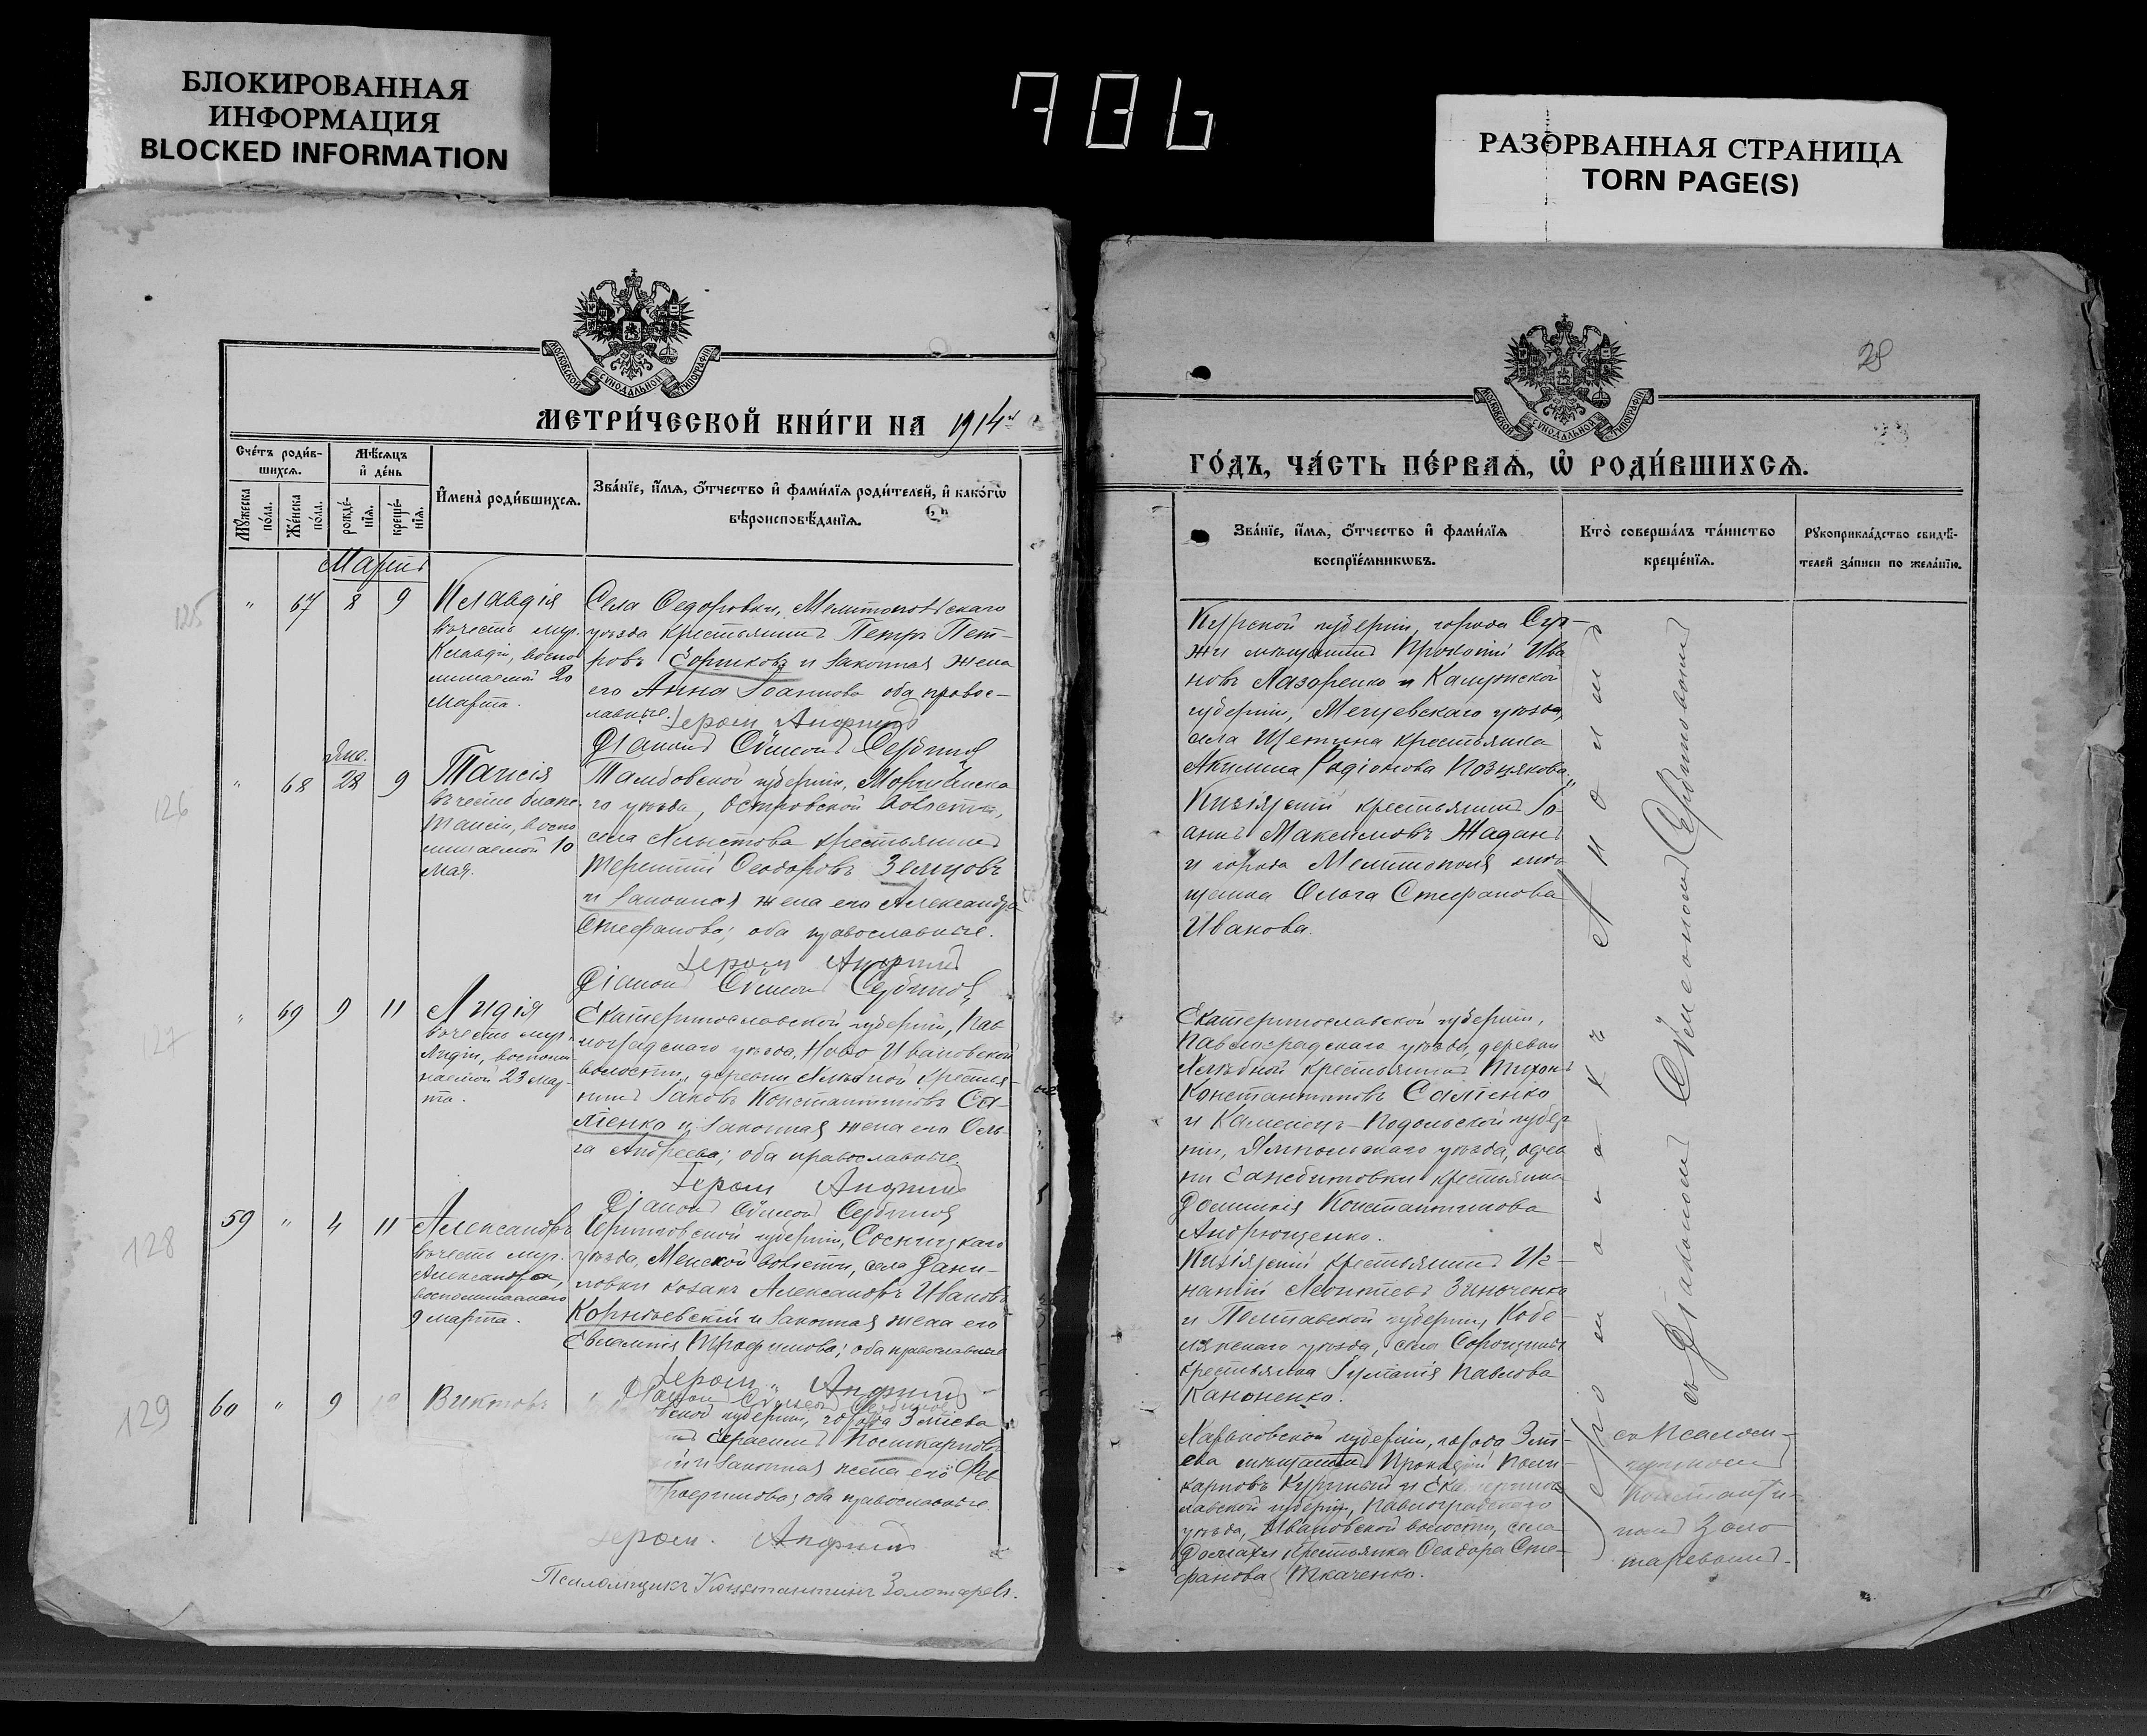 БЛОКИРОВАННАЯ
ИНФОРМАЦИЯ
BLOCKED INFORMATION
786
РАЗОРВАННАЯ СТРАНИЦА
TORN PAGE(S)
МОСКОВСКОЙ СѴНОДАЛЬНОЙ ТИПОГРАФІИ
МЕТРИ́ЧЕСКОЙ КНИ́ГИ НА 1914
Сче́тъ роди́в-
шихсѧ.
Мѣ́сѧцъ
и҆ де́нь
Мꙋ́жеска по́ла.
Же́нска по́ла.
рожде́-
нїѧ.
креще́-
нїѧ.
И҆мена̀ роди́вшихсѧ.
Зва́нїе, и҆́мѧ, ѻ҆́тчество и҆ фами́лїѧ роди́телей, и҆ како́гѡ
вѣроисповѣ́данїѧ.
Мартъ
125
" 67 8 9
Клавдія
въ честь мур.
Клавдіи, воспо
минаемой 20
Марта.
Села Ѳедоровки, Мелитопольскаго
уѣзда крестьянинъ Петръ Пет-
ровъ Горшковъ и законная жена
его Анна Іоаннова оба правос-
лавные.
Іером Андрикъ
Діаконъ Сѵмеонъ Сербиновъ
126
Янв.
" 68 28 9
Таисія
въ честь блаж.
Таисіи, воспо
минаемой 10
Мая.
Тамбовской губерніи, Моршанска
го уѣзда, Островской волости,
села Хлыстова крестьянинъ
Терентій Ѳеодоровъ Земцовъ
и законная жена его Александра
Стефанова; оба православные.
Діаконъ Сѵмеонъ Сербиновъ
127
" 69 9 11
Лидія
въ честь мур.
Лидіи, воспоми
наемой 23 мар-
та.
Екатеринославской губерніи, Пав
лоградскаго уѣзда, Ново Ивановской
волости, деревни Хлѣбной крестья-
нинъ Іаковъ Константиновъ Са-
ліенко и законная жена его Оль-
га Андреева; оба православные.
Діаконъ Сѵмеонъ Сербиновъ
128
59 " 4 11
Александръ
въ честь муч.
Александра,
воспоминаемаго
9 марта.
Черниговской губерніи, Сосницкаго
уѣзда, Менской волости, села Дани-
ловки козакъ Александръ Ивановъ
Корніевскій и законная жена его
Евлампія Трофимова; оба православные
129
60 " 9
Викторъ
вской губерніи, города Зміева
Герасимъ Поликарповъ
и законная жена его
Трофимова; оба православные.
Псаломщикъ Константинъ Золотаревъ.
28
МОСКОВСКОЙ СѴНОДАЛЬНОЙ ТИПОГРАФІИ
ГО́ДЪ, ЧА́СТЬ ПЕ́РВАѦ, Ѡ҆ РОДИ́ВШИХСѦ.
Зва́нїе, и҆́мѧ, ѻ҆́тчество и҆ фами́лїѧ
воспрїе́мникѡвъ.
Кто̀ соверша́лъ та́инство
креще́нїѧ.
Рꙋкоприкла́дство свидѣ́-
телей за́писи по жела́нїю.
Курской губерніи, города Суд-
жи мѣщанинъ Прокопій Ива
новъ Лазаренко и Калужской
губерніи, Мещовскаго уѣзда,
села Щетина крестьянка
Акилина Родіонова Позднякова.
Кизіярскій крестьянинъ Іо-
аннъ Максимовъ Жаданъ
и города Мелитополя мѣ-
щанка Ольга Стефанова
Иванова.
Екатеринославской губерніи,
Павлоградскаго уѣзда, деревни
Хлѣбной крестьянинъ Тихонъ
Константиновъ Саліенко
и Каменецъ-Подольской губер
ніи, Ямпольскаго уѣзда,
крестьянка
Домникія Константинова
Андрющенко.
Кизіярскій крестьянинъ Иг-
натій Леонтіевъ Зинченко
и Полтавской губерніи, Кобе-
лякскаго уѣзда, села Сорочины
крестьянка Павлова
Каноненко.
Харьковской губерніи, города Змі-
ева мѣщанинъ Поли-
карповъ и Екатерино
славской губерніи, Павлоградскаго
уѣзда, Ивановской волости, села
крестьянка Ѳеодора Сте-
фанова Ткаченко.
съ Діакономъ Сѵмеономъ Сербиновымъ
съ Псалом-
щикомъ
Константи-
номъ Золо
таревымъ.